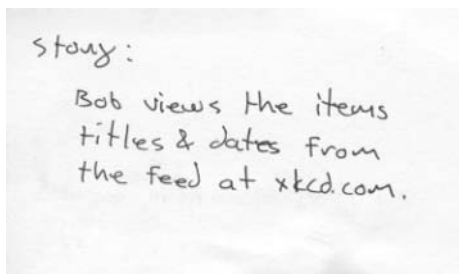 story:
Bob views the items
titles & dates from
the feed at xkcd.com.